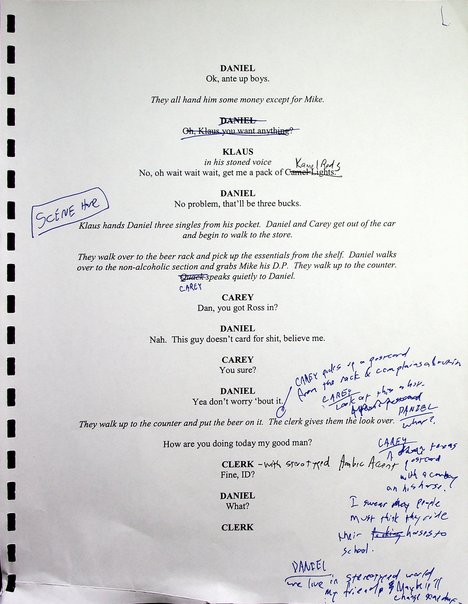 DANIEL
Ok, ante up boys.
They all hand him some money except for Mike.
DANIEL
Oh, Klaus you want anything?
KLAUS
in his stoned voice
Kamel Reds
No, oh wait wait wait, get me a pack of Camel Lights.
DANIEL
No problem, that'll be three bucks.
SCENE
Klaus hands Daniel three singles from his pocket. Daniel and Carey get out of the car
and begin to walk to the store.
They walk over to the beer rack and pick up the essentials from the shelf. Daniel walks
over to the non-alcoholic section and grabs Mike his D.P. They walk up to the counter.
speaks quietly to Daniel.
CAREY
CAREY
Dan, you got Ross in?
DANIEL
Nah. This guy doesn't card for shit, believe me.
CAREY
You sure?
DANIEL
Yea don't worry 'bout it.
CAREY picks up a postcard
from the rack & complains about
CAREY
Look at this
postcard
DANIEL
what?
They walk up to the counter and put the beer on it. The clerk gives them the look over.
How are you doing today my good man?
CAREY
A texas
postcard
with a cowboy
on his horse!
CLERK - with stereotyped Arabic Accent
Fine, ID?
I swear people
must think they ride
their horses to
school.
DANIEL
What?
CLERK
DANIEL
we live in stereotyped world
my friend Maybe it'll
change someday